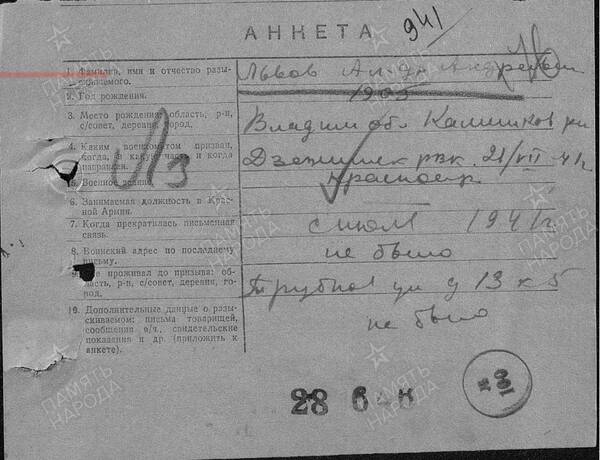 АНКЕТА
941
1. Фамилия, имя и отчество разы-
скиваемого.
Львов Ал-др Андреевич
2. Год рождения.
1905
3. Место рождения: область, р-н,
с/совет, деревня, город.
Владим обл
4. Каким военкоматом призван,
когда, в какую часть и когда
направлен.
Дзержинск рвк. 21/VII-41г
5. Военное звание.
красноарм
6. Занимаемая должность в Крас-
ной Армии.
7. Когда прекратилась письменная
связь.
с июля 1941г
8. Воинский адрес по последнему
письму.
не было
9. Где проживал до призыва: об-
ласть, р-н, с/совет, деревня, го-
род.
Трубная ул д 13 к 5
10. Дополнительные данные о разы-
скиваемом: письма товарищей,
сообщения в/ч, свидетельские
показания и др. (приложить к
анкете).
не было
28
ПАМЯТЬ
НАРОДА